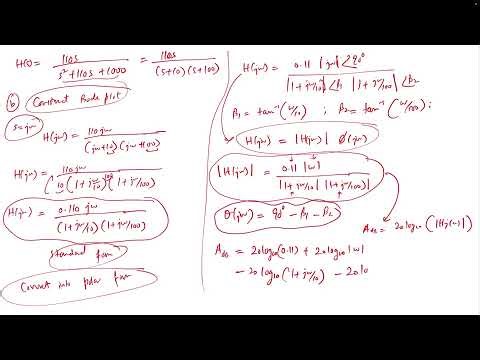 H(s) = 110s / s² + 110s + 1000 = 110s / (s+10)(s+100)
(b) Construct Bode plot
s = jω
H(jω) = 110 jω / (jω+10)(jω+100)
H(jω) = 110 jω / 10 (1+jω/10) 100 (1+jω/100)
H(jω) = 0.110 jω / (1+jω/10)(1+jω/100)
Standard form
Convert into polar form
H(jω) = 0.11 |jω| ∠90° / |1+jω/10| ∠β₁ |1+jω/100| ∠β₂
β₁ = tan⁻¹(ω/10) ; β₂ = tan⁻¹(ω/100) ;
H(jω) = |H(jω)| Ø(jω)
|H(jω)| = 0.11 |ω| / |1+jω/10| |1+jω/100|
θ(jω) = 90° − β₁ − β₂
A_dB = 20 log₁₀ (|H(jω)|
A_dB = 20 log₁₀(0.11) + 20 log₁₀|ω|
− 20 log₁₀(1+jω/10) − 20 lo